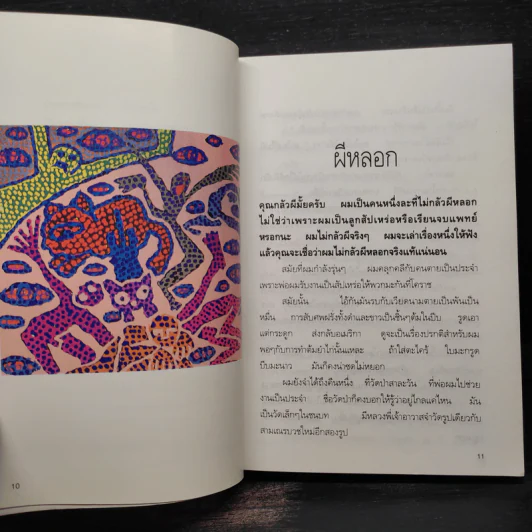 ผีหลอก
คุณกลัวผีมั้ยครับ ผมเป็นคนหนึ่งละที่ไม่กลัวผีหลอก
ไม่ใช่ว่าเพราะผมเป็นลูกสัปเหร่อหรือเรียนจบแพทย์
หรอกนะ ผมไม่กลัวผีจริงๆ ผมจะเล่าเรื่องหนึ่งให้ฟัง
แล้วคุณจะเชื่อว่าผมไม่กลัวผีหลอกจริงแท้แน่นอน
สมัยที่ผมกำลังรุ่นๆ ผมคลุกคลีกับคนตายเป็นประจำ
เพราะพ่อผมรับงานเป็นสัปเหร่อให้พวกมะกันที่โคราช
สมัยนั้น ไอ้กันมันรบกับเวียดนามตายเป็นพันเป็น
หมื่น การสับศพฝรั่งทั้งดำและขาวเป็นชิ้นๆต้มในปี๊บ รูดเอา
แต่กระดูก ส่งกลับอเมริกา ดูจะเป็นเรื่องปรกติสำหรับผม
พอๆกับการทำต้มยำไก่นั้นแหละ ถ้าใส่ตะไคร้ ใบมะกรูด
บีบมะนาว มันก็คงน่าซดไม่หยอก
ผมยังจำได้ถึงคืนหนึ่ง ที่วัดป่าสาละวัน ที่พ่อผมไปช่วย
งานเป็นประจำ ชื่อวัดป่าก็คงบอกให้รู้ว่าอยู่ไกลแค่ไหน มัน
เป็นวัดเล็กๆในชนบท มีหลวงพี่เจ้าอาวาสจำวัดรูปเดียวกับ
สามเณรบวชใหม่อีกสองรูป
10
11